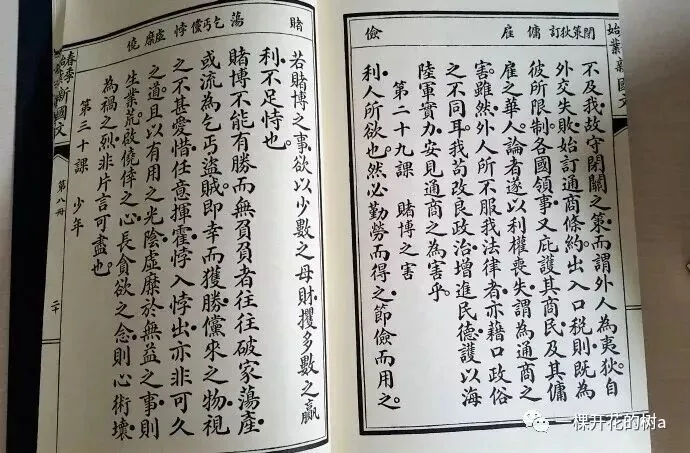 閉策狄訂 傭 雇 儉
不及我。故守閉關之策。而謂外人為夷狄。自
外交失敗。始訂通商條約。出入口稅則。既為
彼所限制。各國領事。又庇護其商民。及其傭
雇之華人。論者遂以利權喪失。謂為通商之
害。雖然。外人所不服我法律者。亦藉口政俗
之不同耳。我苟改良政治。增進民德。護以海
陸軍實力。安見通商之為害乎。
第二十九課 賭博之害
利。人所欲也。然必勤勞而得之。節儉而用之。
賭 蕩 乞丐儻 悖 虛靡 僥
若賭博之事。欲以少數之母財。攫多數之贏
利。不足恃也。
賭博不能有勝而無負。負者往往破家蕩產。
或流為乞丐盜賊。即幸而獲勝。儻來之物。視
之不甚愛惜。任意揮霍。悖入悖出。亦非可久
之道。且以有用之光陰。虛靡於無益之事。則
生業荒。啟僥倖之心。長貪欲之念。則心術壞。
為禍之烈。非片言可盡也。
第三十課 少年
春季始業新國文
第八冊
二十
一棵开花的树a